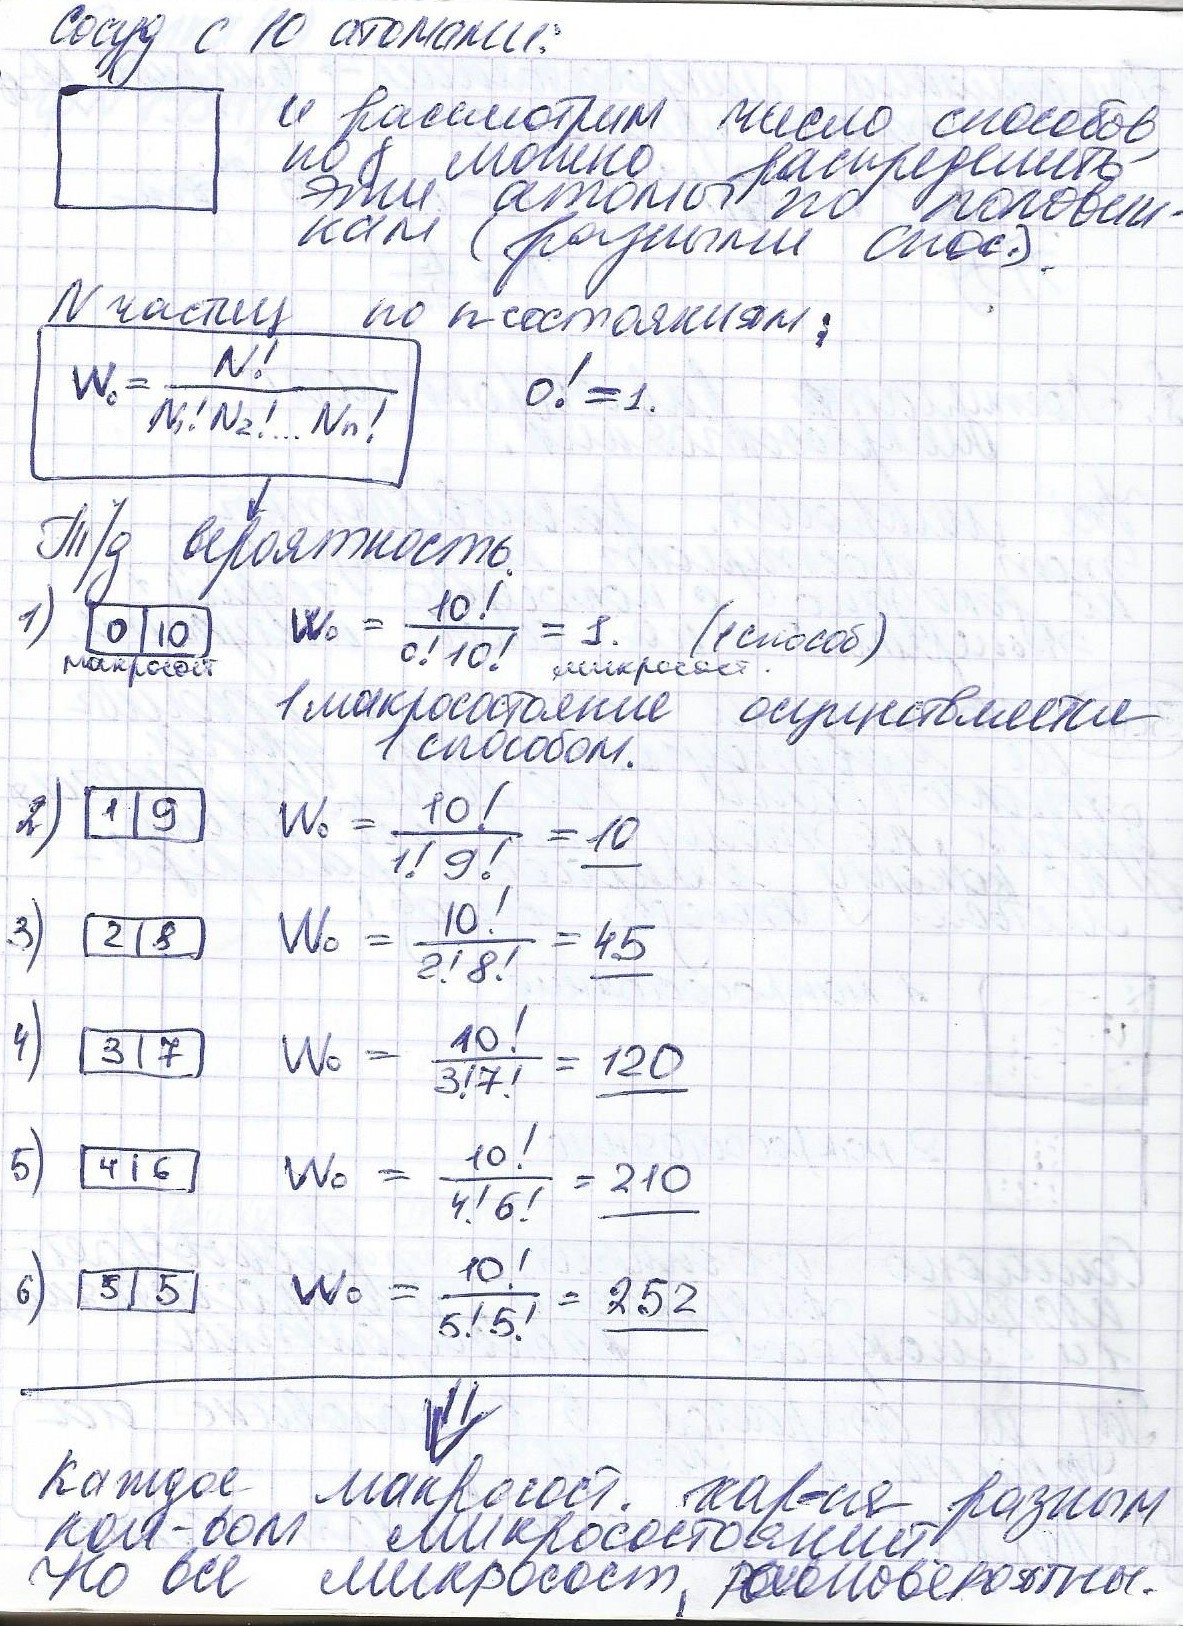 Сосуд с 10 атомами:
и рассмотрим число способов,
можно распределить
эти атомы по половин-
кам (разными спос.).
N частиц по n-состояниям:
W₀ = N! / N₁! N₂! ... Nn!
0! = 1.
Т/д вероятность.
1) 0 | 10 W₀ = 10! / 0! 10! = 1. (1 способ)
макросост микросост.
1 макросостояние осуществляется
1 способом.
2) 1 | 9 W₀ = 10! / 1! 9! = 10
3) 2 | 8 W₀ = 10! / 2! 8! = 45
4) 3 | 7 W₀ = 10! / 3! 7! = 120
5) 4 | 6 W₀ = 10! / 4! 6! = 210
6) 5 | 5 W₀ = 10! / 5! 5! = 252
Каждое макросост. хар-ся разным
кол-вом микросостояний
Но все микросост, равновероятны.